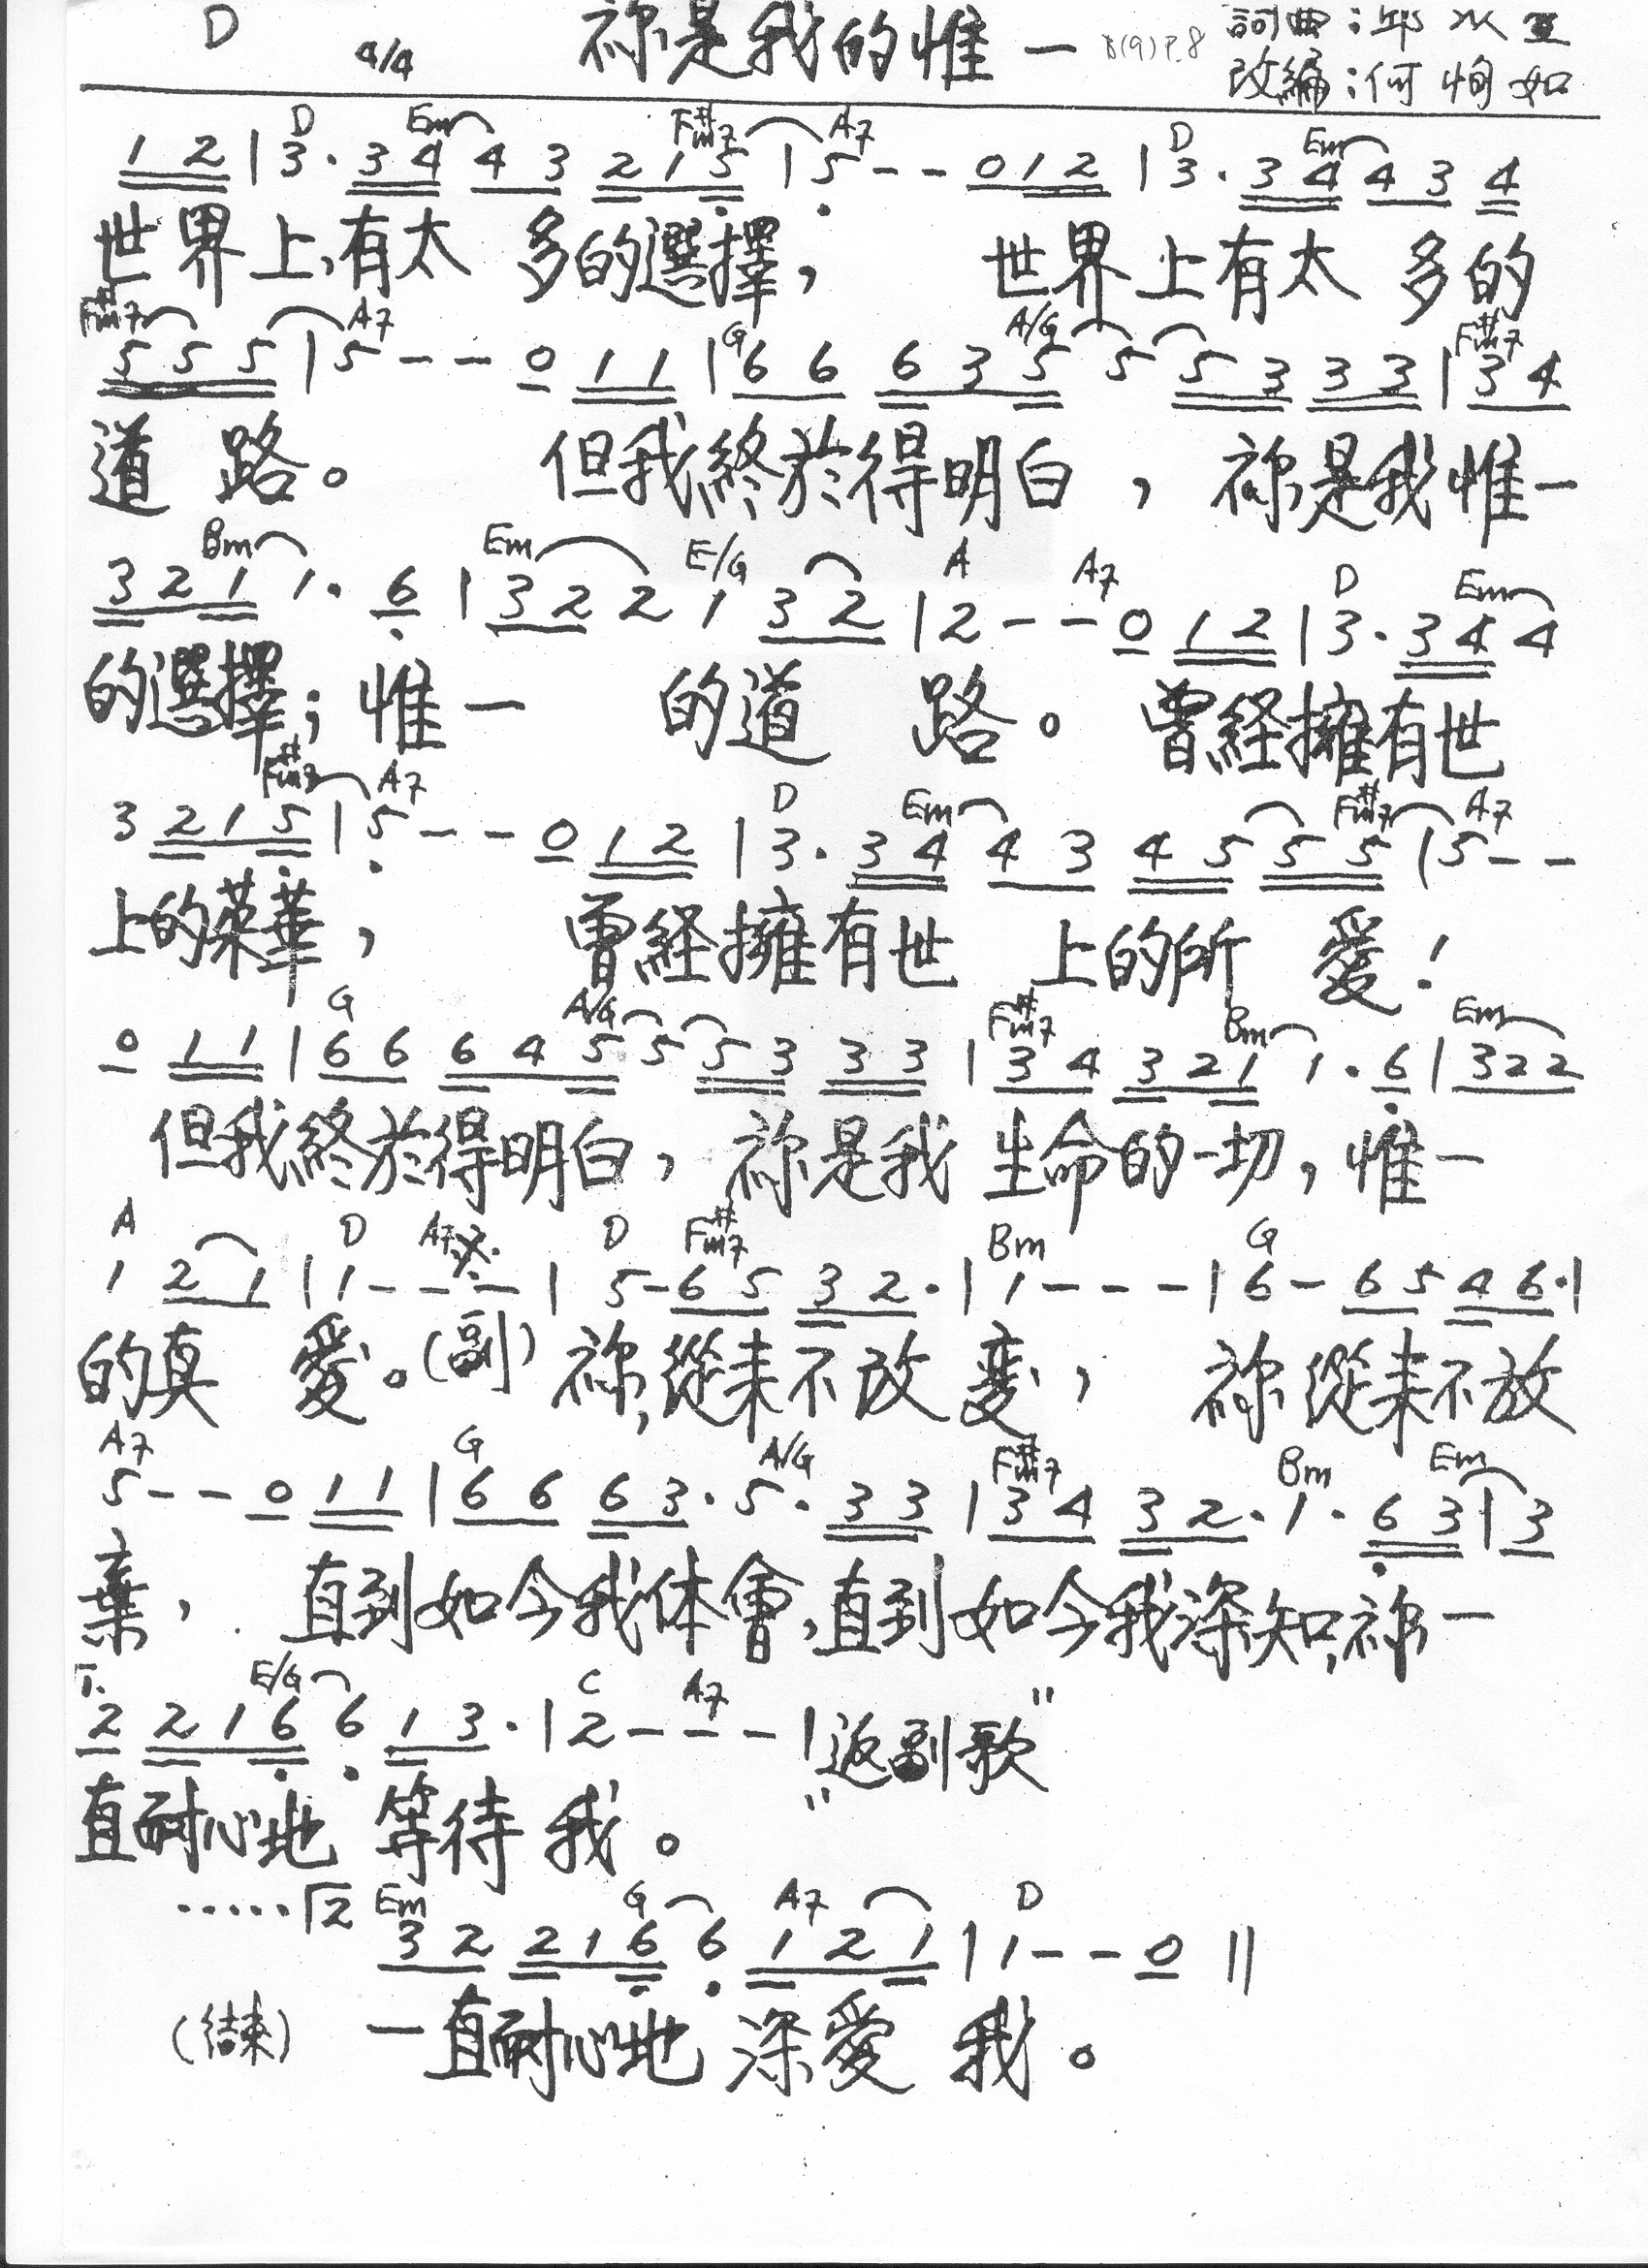 D 4/4 祢是我的惟一 B(9)P.8 詞曲:邱
改編:何怡如
D Em F#m7 A7 D Em
1 2 | 3 . 3 4 4 3 2 1 5 | 5 - - 0 1 2 | 3 . 3 4 4 3 4
世界上,有太 多的選擇, 世界上有太 多的
F#m7 A7 G A/G F#m7
5 5 5 | 5 - - 0 1 1 | 6 6 6 3 5 5 5 3 3 3 | 3 4
道 路。 但我終於得明白, 祢是我惟一
Bm Em E/G A A7 D Em
3 2 1 1 . 6 | 3 2 2 1 3 2 | 2 - - 0 1 2 | 3 . 3 4 4
的選擇; 惟一 的道 路。 曾経擁有世
F#m7 A7 D Em F#m7 A7
3 2 1 5 | 5 - - 0 1 2 | 3 . 3 4 4 3 4 5 5 5 | 5 - -
上的荣華, 曾経擁有世 上的所 愛!
G A/G F#m7 Bm Em
0 1 1 | 6 6 6 4 5 5 5 3 3 3 | 3 4 3 2 1 1 . 6 | 3 2 2
但我終於得明白, 祢是我 生命的一切, 惟一
A D A7 D F#m7 Bm G
1 2 1 | 1 - - - | 5 - 6 5 3 2 . | 1 - - - | 6 - 6 5 4 6 . |
的真 愛。(副) 祢,從未不改 變, 祢從未不放
A7 G A/G F#m7 Bm Em
5 - - 0 1 1 | 6 6 6 3 . 5 . 3 3 | 3 4 3 2 . 1 . 6 3 | 3
棄, 直到如今我体會,直到如今我深知,祢一
1. E/G C A7
2 2 1 6 6 1 3 . | 2 - - - | "返副歌"
直耐心地 等待 我。
.....2 Em G A7 D
3 2 2 1 6 6 1 2 1 | 1 - - 0 ||
(结束) 一直耐心地 深愛 我。